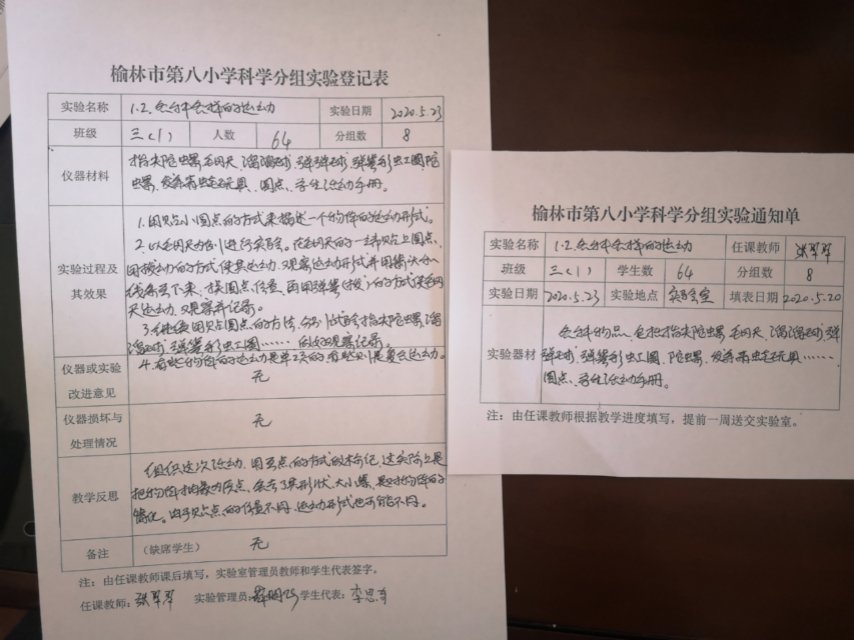 榆林市第八小学科学分组实验登记表
实验名称 1.2.各种各样的运动 实验日期 2020.5.23
班级 三(1) 人数 64 分组数 8
仪器材料
指尖陀螺、毛网天、溜溜球、弹弹球、弹簧彩虹圈、陀
螺、发条青蛙玩具、圆点、学生活动手册。
实验过程及
其效果
1.用贴小圆点的方式来描述一个物体的运动形式。
2.以 为例进行实验。在 的一端贴上圆点,
用拨动的方式使其运动,观察运动形式并用箭头
线条画下来,换圆点位置,再用弹簧 的方式使
运动,观察并记录。
3.继续用贴圆点的方法,分别试验指尖陀螺、溜
溜球、弹簧彩虹圈……的 观察记录。
4.有些物体的运动是单一的,有些则是复合运动。
仪器或实验
改进意见
无
仪器损坏与
处理情况
无
教学反思
组织这次活动,用圆点的方式 标记,这实际上是
把物体抽象为质点,舍去了其形状、大小等,是对物体的
简化。由于贴点的位置不同,运动形式也可能不同。
备注 (缺席学生) 无
注:由任课教师课后填写,实验室管理员教师和学生代表签字。
任课教师:张翠翠 实验管理员: 学生代表:李思奇
榆林市第八小学科学分组实验通知单
实验名称 1.2.各种各样的运动 任课教师 张翠翠
班级 三(1) 学生数 64 分组数 8
实验日期 2020.5.23 实验地点 实验室 填表日期 2020.5.20
实验器材
各种物品,包括指尖陀螺、 、溜溜球、弹
弹球、弹簧彩虹圈、陀螺、发条青蛙玩具……
圆点、学生活动手册。
注:由任课教师根据教学进度填写,提前一周送交实验室。